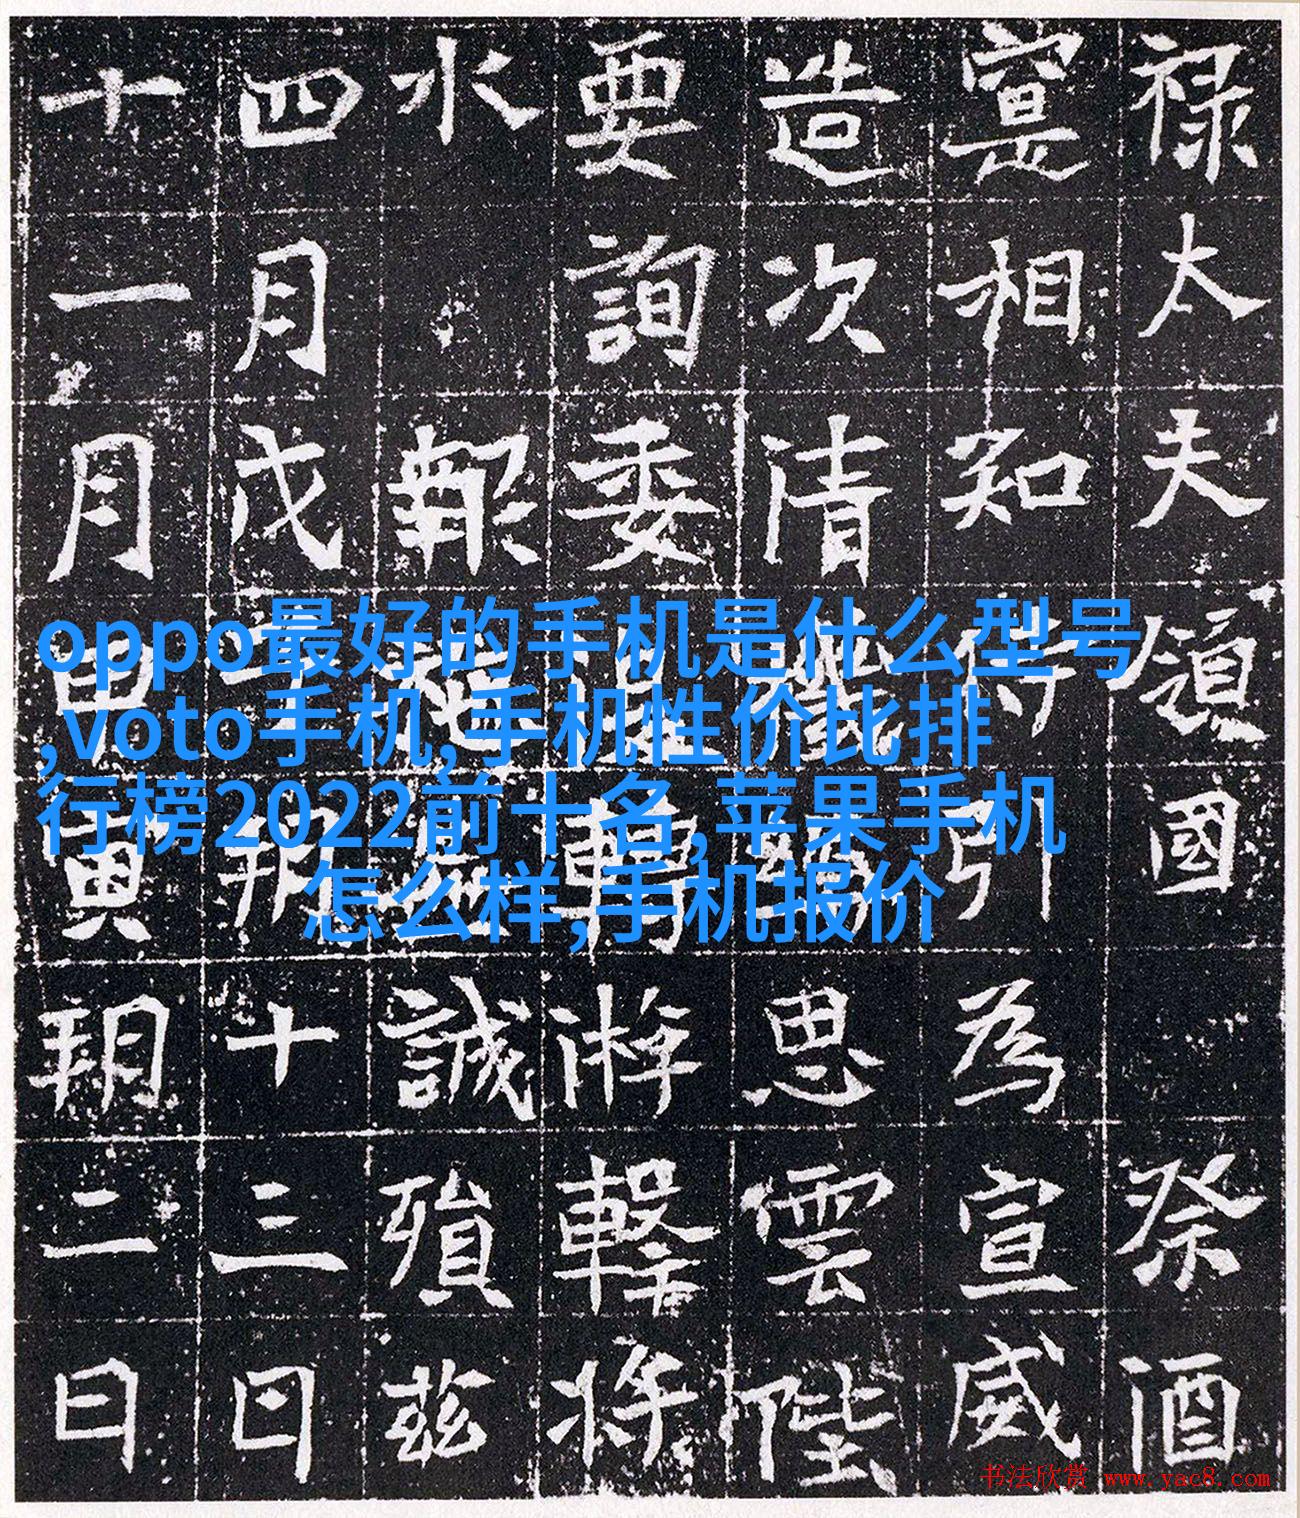 oppo最好的手机是什么型号
,voto手机,手机性价比排
行榜2022前十名,苹果手机
怎么样,手机报价
禄太夫領國祭酒
寔相知引為宣威
造次清思雲陛
要詢委游擊将
水報誠殞茲
四月戊十三日
十一月寅朔二日
书法欣赏 www.yac8.com